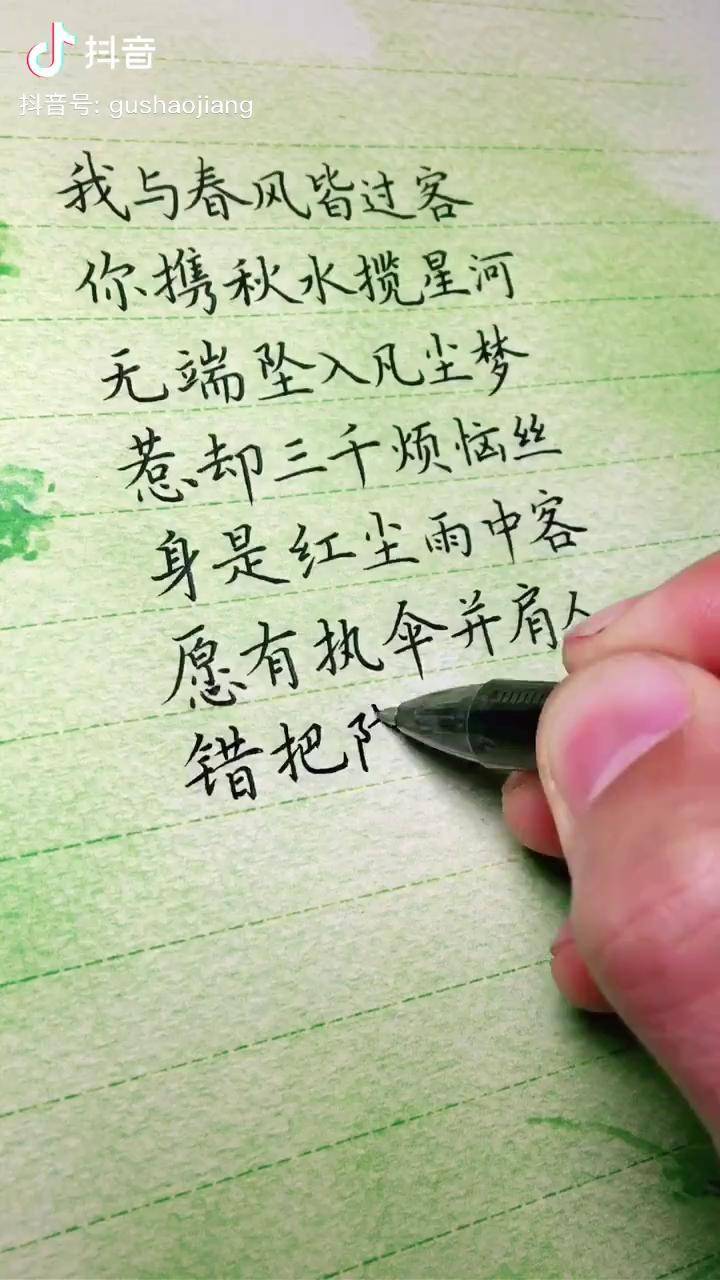 抖音
抖音号: gushaojiang
我与春风皆过客
你携秋水揽星河
无端坠入凡尘梦
惹却三千烦恼丝
身是红尘雨中客
愿有执伞并肩人
错把